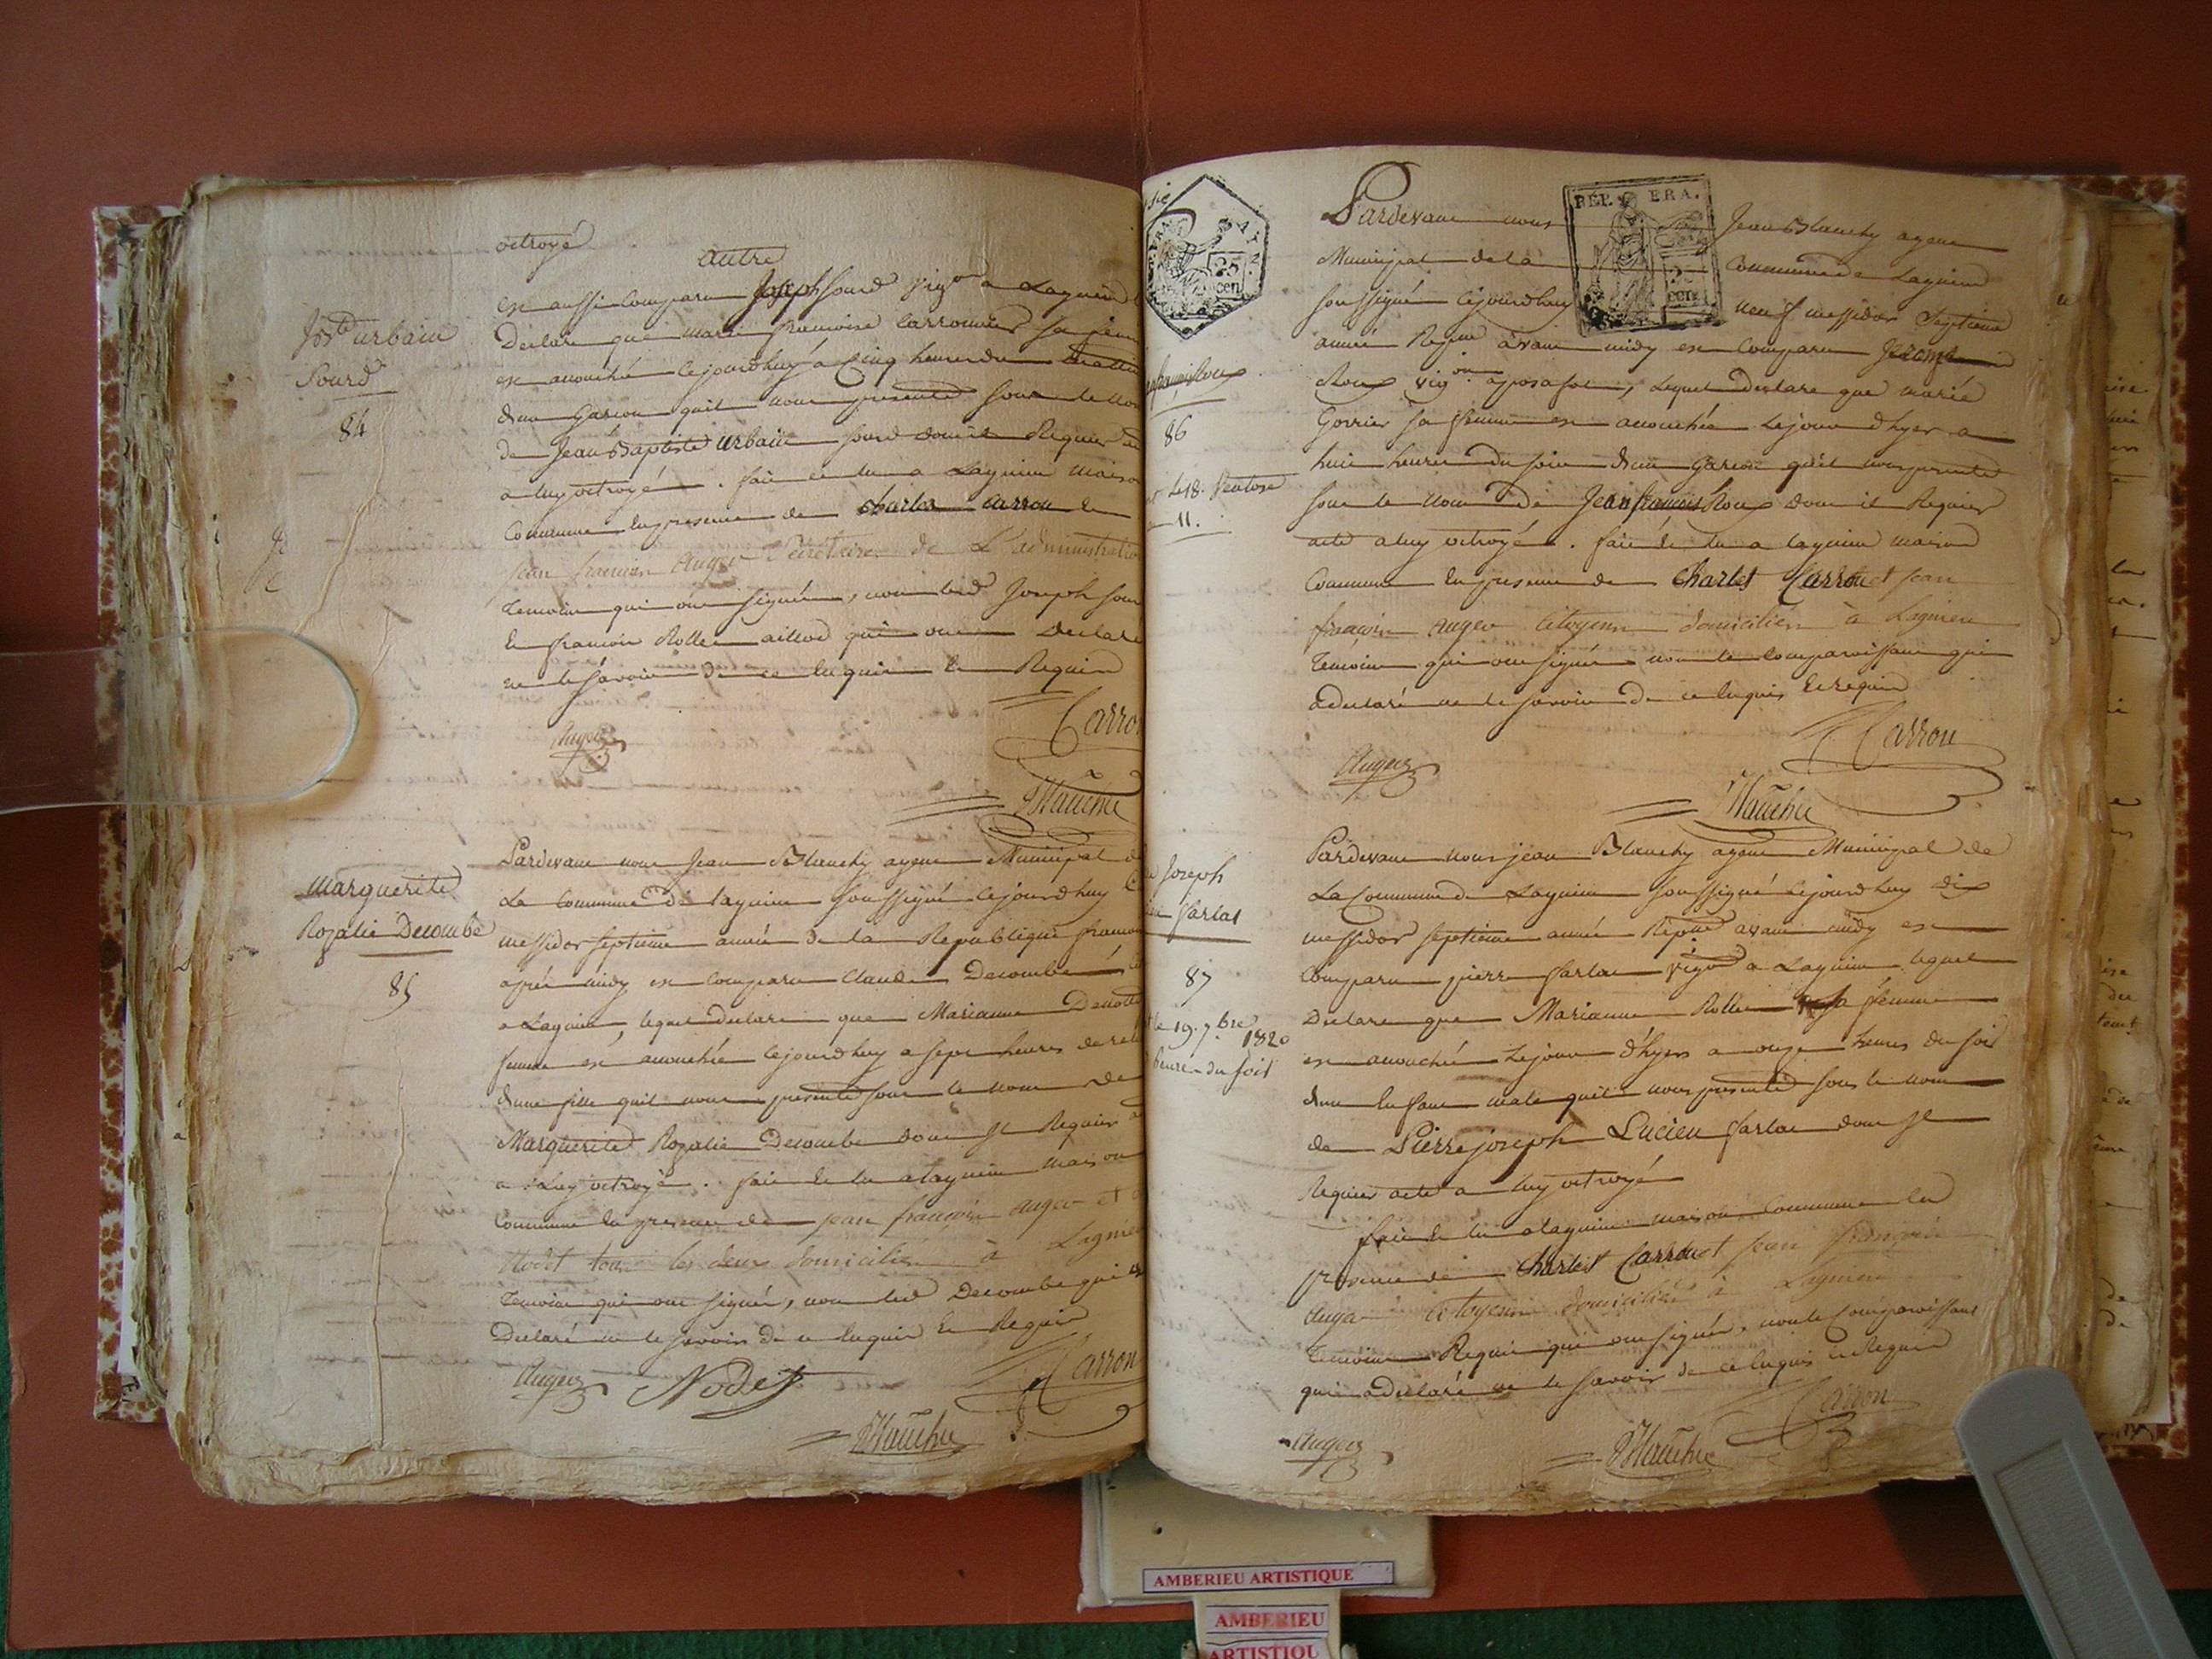 octroyé
autre
est aussi comparu Joseph Sourd vig.on a Lagnieu
Declare que marie francoise Carronnier sa fem
est accouchée cejourdhuy a Cinq heures du mattin
dun garcon quil nous presente sous le nom
de Jean Baptiste urbain Sourd dont il Requier
a luy octroyé. fait et lu a Lagnieu Maison
Commune En presence de Charles Carron Et
jean francois Auger Sécrétaire de L'administratio
temoins qui ont signés, non led Joseph Sour
Et francois Rollet aillod qui ont Declaré
ne le sçavoir de ce Enquis Et Requis
Jn Bte urbain
Sourd
84
Auger
Carron
Blanchy
Pardevant nous Jean Blanchy agent Municipal de
La Commune de Lagnieu soussigné cejourdhuy
messidor septieme année de la Republique francai
aprés midy est comparu Claude Decombe
a Lagnieu, lequel declare que Marianne
femme est accouchée cejourdhuy a sept heures de
dune fille quil nous presente sous le nom de
Marguerite Rozalie Decombe dont Il Requier
a Luy octroyé. fait Et lu a Lagnieu Maison
Commune En presence de jean françois Auger et
Nodet tous les deux domiciliés à Lagnieu
temoins qui ont signés, non led Decombe qui a
Declaré ne le sçavoir de ce Enquis Et Requis
Marguerite
Rozalie Decombe
85
Auger Nodet Carron
Blanchy
RÉP. ERA.
25
cen
Pardevant nous Jean Blanchy agent
Municipal de la Commune de Lagnieu
soussigné Cejourdhuy neuf messidor Septieme
année Repne avant midy est Comparu Jerome
Roux vig.on a posafol, Lequel declare que marie
Gorrier sa femme est accouchée Lejour dhyer a
huit heures du soir dun garcon quil nous presente
sous le nom de Jean francois Roux dont il Requier
acte a luy octroyé. fait Et lu a lagnieu maison
Commune En presence de Charles Carron et jean
françois Auger Citoyens domiciliés à Lagnieu
temoins qui ont signés non le Comparoissant qui
a declaré ne le sçavoir de ce Enquis Et requis
86
le 18. Ventose
11.
Auger
Carron
Blanchy
Pardevant nous jean Blanchy agent Municipal de
La Commune de Lagnieu soussigné cejourdhuy dix
messidor septieme année Repne avant midy est
Comparu pierre sarlat vigon a Lagnieu lequel
Declare que Marianne Rollet sa femme
est accouchée Lejour d'hyer a onze heures du soir
dun Enfant male quil nous presente sous le nom
de Pierre joseph Lucien sarlat dont Il
Requier acte a luy octroyé
fait Et lu a Lagnieu maison Commune En
presence de Charles Carron et jean françois
Auger Citoyens domiciliés à Lagnieu
temoins Requis qui ont signés, non le Comparoissant
qui a declaré ne le sçavoir de ce Enquis Et Requis
Joseph
sarlat
87
le 19. 7bre 1820
heure du soir
Auger Carron
Blanchy
AMBERIEU ARTISTIQUE
AMBERIEU
ARTISTIQU